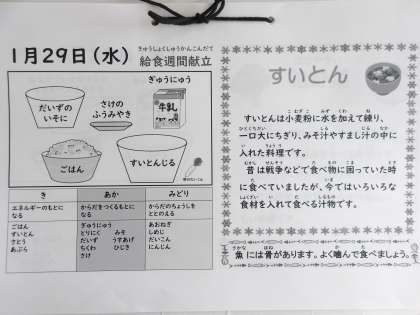 1月29日(水)
きゅうしょくしゅうかんこんだて
給食週間献立
ぎゅうにゅう
牛乳
だいずの
いそに
さけの
ふうみやき
ごはん
すいとんじる
き
あか
みどり
エネルギーのもとに
なる
からだをつくるもとに
なる
からだのちょうしを
ととのえる
ごはん
すいとん
さとう
あぶら
ぎゅうにゅう
とりにく　みそ
だいず　うすあげ
ちくわ　ひじき
さけ
あおねぎ
しめじ
だいこん
にんじん
すいとん
すいとんは小麦粉に水を加えて練り、
一口大にちぎり、みそ汁やすまし汁の中に
入れた料理です。
昔は戦争などで食べ物に困っていた時
に食べていましたが、今ではいろいろな
食材を入れて食べる汁物です。
魚には骨があります。よく噛んで食べましょう。